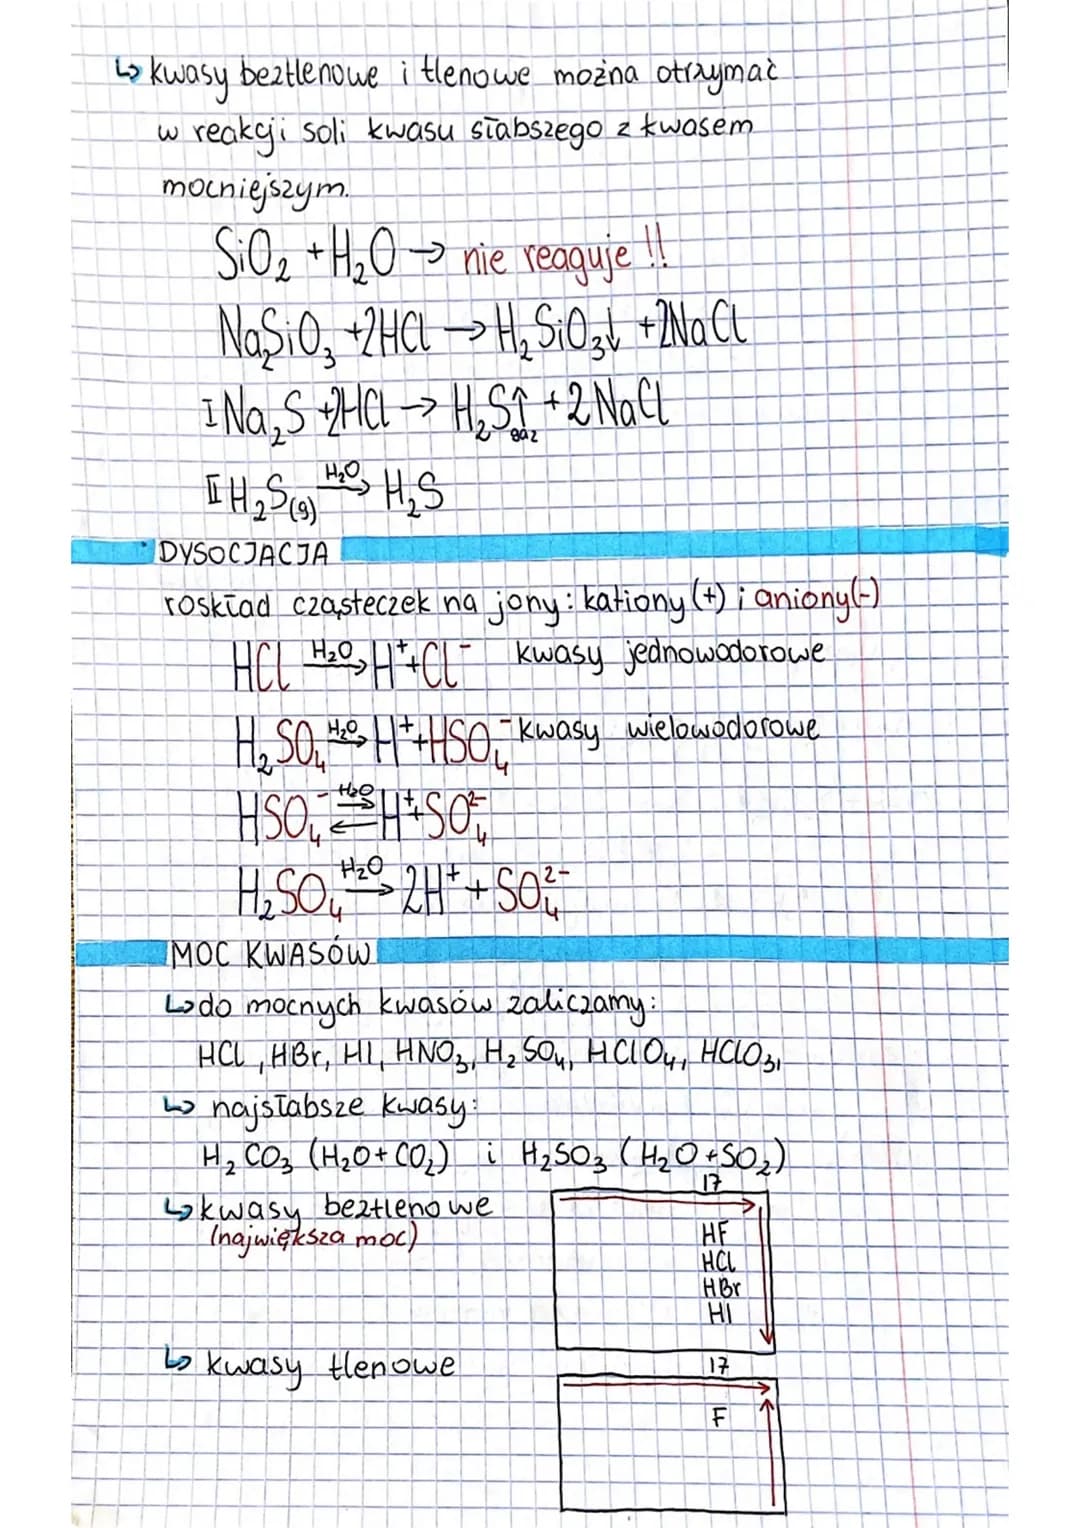 ↳ kwasy beztlenowe i tlenowe można otrzymać
w reakcji soli kwasu słabszego z kwasem
mocniejszym.
SiO₂ + H₂O → nie reaguje !!
Na₂SiO₃ + 2HCl → H₂SiO₃↓ + 2NaCl
I Na₂S + 2HCl → H₂S↑ + 2NaCl
gaz
II H₂S(g) H₂O→ H₂S
DYSOCJACJA
roskład cząsteczek na jony: kationy (+) i aniony (-)
HCl H₂O→ H⁺ + Cl⁻ kwasy jednowodorowe
H₂SO₄ H₂O→ H⁺ + HSO₄⁻ kwasy wielowodorowe
HSO₄⁻ H₂O⇄ H⁺ + SO₄²⁻
H₂SO₄ H₂O→ 2H⁺ + SO₄²⁻
MOC KWASÓW
↳ do mocnych kwasów zaliczamy:
HCl, HBr, HI, HNO₃, H₂SO₄, HClO₄, HClO₃,
↳ najsłabsze kwasy:
H₂CO₃ (H₂O + CO₂) i H₂SO₃ (H₂O + SO₂)
17
↳ kwasy beztlenowe
(największa moc)
HF
HCl
HBr
HI
↳ kwasy tlenowe
17
F